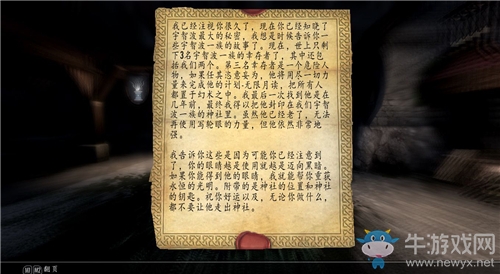 我已经注视你很久了，现在你已经知晓了
宇智波最大的秘密，我想是时候告诉你一
些宇智波一族的故事了。现在，世上只剩
下3名宇智波一族的幸存者了，其中还包
括我们两个。第三名幸存者是一个危险人
物，如果任其恣意妄为，他将用尽一切力
量来完成他的计划-无限月读，把所有人
都置于幻术之中。我最后一次找到他是在
几年前，最终我得以把他封印在我们宇智
波一族的神社里。虽然他已经老了，无法
再使用写轮眼的力量，但他依然非常地
强。
我告诉你这些是因为可能你已经注意到
了，你的眼睛越是使用就越是迈向黑暗。
如果你能得到他的眼睛，我就能帮你重获
永恒的光明。附带的是神社的位置和神社
的钥匙。祝你好运以及，无论你做什么，
都不要让他走出神社。
翻页
牛游戏网
www.newyx.net